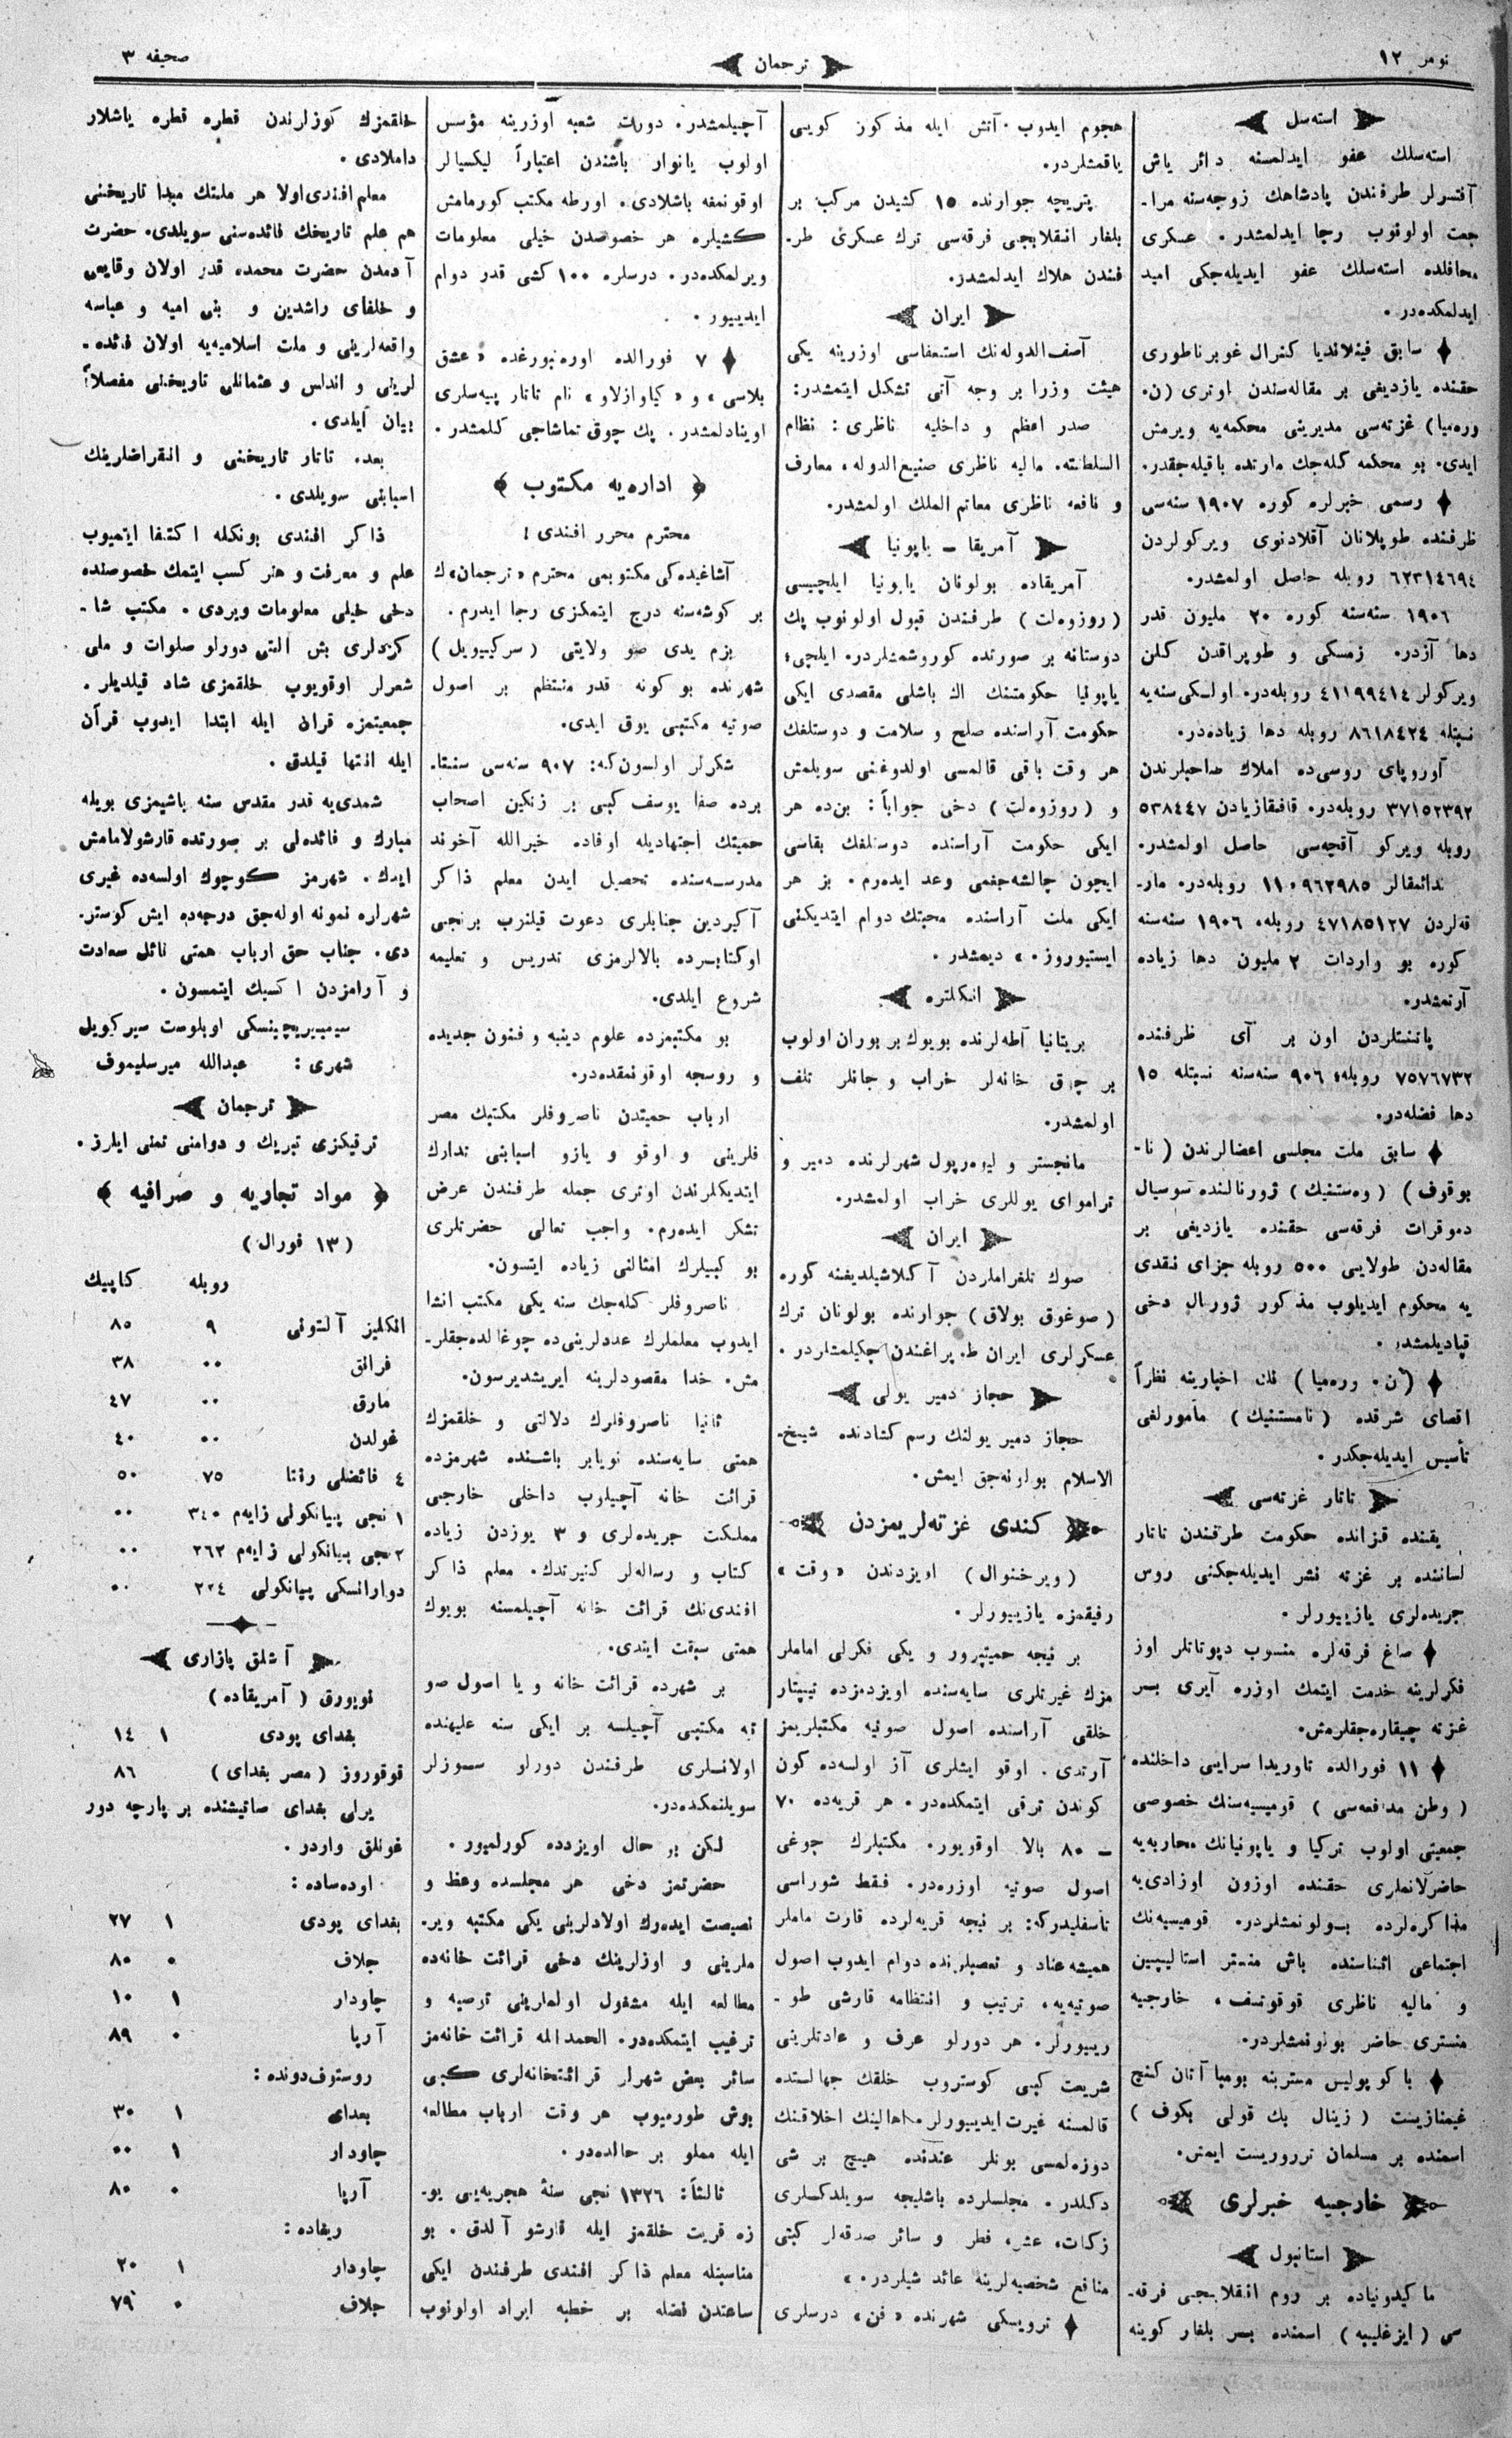 نومر ١٢
ترجمان
صحيفه ٣
استه‌سل
استه‌سلك عفو ايدلمسنه دائر ياش
آفتسرلر طرفندن پادشاهك زوجه‌سنه مرا-
جعت اولونوب رجا ايدلمشدر. عسكرى
محافلده استه‌سلك عفو ايديله‌جكى اميد
ايدلمكده‌در.
سابق فينلانديا گنرال غوبرناطورى
حقنده يازديغى بر مقاله‌سندن اوترى (ن.
وره‌ميا) غزته‌سى مديرينى محكمه‌يه ويرمش
ايدى. بو محكمه كله‌جك مارتده باقيله‌جقدر.
رسمى خبرلره كوره ١٩٠٧ سنه‌سى
ظرفنده طوپلانان آقلادنوى ويركولردن
٦٢٣١٤٦٩٤ روبله حاصل اولمشدر.
١٩٠٦ سنه‌سنه كوره ٢٠ مليون قدر
دها آزدر. زمسكى و طوپراقدن كلن
ويركولر ٤١١٩٩٤١٤ روبله‌در. اولكى سنه‌يه
نسبتله ٨٦١٨٤٢٤ روبله دها زياده‌در.
آوروپاى روسى‌ده املاك صاحبلرندن
٣٧١٥٢٣٩٢ روبله‌در. قافقازيادن ٥٣٨٤٤٧
روبله ويركو آقچه‌سى حاصل اولمشدر.
١١٠٩٦٢٩٨٥ روبله‌در. مار-
قه‌لردن ٤٧١٨٥١٢٧ روبله، ١٩٠٦ سنه‌سنه
كوره بو واردات ٢ مليون دها زياده
آرتمشدر.
پاتنتلردن اون بر آى ظرفنده
٧٥٧٦٧٣٢ روبله، ٩٠٦ سنه‌سنه نسبتله ١٥
دها فضله‌در.
سابق ملت مجلسى اعضالرندن (نا-
بوقوف) (وه‌ستنيك) ژورنالنده سوسيال
ده‌موقرات فرقه‌سى حقنده يازديغى بر
مقاله‌دن طولايى ٥٠٠ روبله جزاى نقدى
يه محكوم ايديلوب مذكور ژورنال دخى
قپاديلمشدر.
(ن. وره‌ميا) نك اخبارينه نظراً
اقصاى شرقده (نامستنيك) مأمورلغى
تأسيس ايديله‌جكدر.
تاتار غزته‌سى
يقنده قزانده حكومت طرفندن تاتار
لساننده بر غزته نشر ايديله‌جكنى روس
جريده‌لرى يازييورلر.
صاغ فرقه‌لره منسوب دپوتاتلر اوز
فكرلرينه خدمت ايتمك اوزره آيرى بر
غزته چيقاره‌جقلرمش.
١١ فورالده تاوريدا سرايى داخلنده
(وطن مدافعه‌سى) قوميسيه‌سنك خصوصى
جمعيتى اولوب تركيا و ياپونيانك محاربه‌يه
حاضرلانملرى حقنده اوزون اوزادى‌يه
مذاكره‌لرده بولونمشلردر. قوميسيه‌نك
اجتماعى اثناسنده باش منستر استاليپين
و ماليه ناظرى قوقوتسف، خارجيه
منسترى حاضر بولونمشلردر.
باكو پوليس مسترينه بومبا آتان كنج
غيمنازيست (زينال بك قولى بكوف)
اسمنده بر مسلمان ترروريست ايمش.
خارجيه خبرلرى
استانبول
ماكيدونياده بر روم انقلابجى فرقه-
سى (ايزغليبه) اسمنده بر بلغار كوينه
هجوم ايدوب. آتش ايله مذكور كويى
ياقمشلردر.
پتريچه جوارنده ١٥ كشيدن مركب بر
بلغار انقلابجى فرقه‌سى ترك عسكرى طر-
فندن هلاك ايدلمشدر.
ايران
آصف‌الدوله‌نك استعفاسى اوزرينه يكى
هيئت وزرا بر وجه آتى تشكل ايتمشدر:
صدر اعظم و داخليه ناظرى: نظام
السلطنه. ماليه ناظرى صنيع‌الدوله، معارف
و نافعه ناظرى معاتم الملك اولمشدر.
آمريقا - ياپونيا
آمريقاده بولونان ياپونيا ايلچيسى
(روزوه‌لت) طرفندن قبول اولونوب پك
دوستانه بر صورتده كوروشمشلردر. ايلچى،
ياپونيا حكومتنك اك باشلى مقصدى ايكى
حكومت آراسنده صلح و سلامت و دوستلغك
هر وقت باقى قالمسى اولدوغنى سويلمش
و (روزوه‌لت) دخى جواباً: بن‌ده هر
ايكى حكومت آراسنده دوستلغك بقاسى
ايچون چالشه‌جغمى وعد ايده‌رم. بز هر
ايكى ملت آراسنده محبتك دوام ايتديكنى
ايستيوروز.» ديمشدر.
انكلتره
بريتانيا آطه‌لرنده بويوك بر بوران اولوب
بر چوق خانه‌لر خراب و جانلر تلف
اولمشدر.
مانچستر و ليوه‌رپول شهرلرنده دمير و
تراموای يوللرى خراب اولمشدر.
ايران
صوك تلغرافلردن آكلاشيلديغنه كوره
(صوغوق بولاق) جوارنده بولونان ترك
عسكرلرى ايران طوپراغندن چكيلمشلردر.
حجاز دمير يولى
حجاز دمير يولنك رسم كشادنده شيخ-
الاسلام بولونه‌جق ايمش.
كندى غزته‌لريمزدن
(ويرخنوال) اويزدندن «وقت»
رفيقمزه يازييورلر.
بر نيجه حميتپرور و يكى فكرلى اماملر
مزك غيرتلرى سايه‌سنده اويزدمزده تيپتار
خلقى آراسنده اصول صوتيه مكتبلريمز
آرتدى. اوقو ايشلرى آز اولسه‌ده كون
كوندن ترقى ايتمكده‌در. هر قريه‌ده ٧٠
- ٨٠ بالا اوقويور. مكتبلرك چوغى
اصول صوتيه اوزره‌در. فقط شوراسى
تأسفليدركه: بر نيجه قريه‌لرده قارت ماملر
هميشه عناد و تعصبلرنده دوام ايدوب اصول
صوتيه‌يه، ترتيب و انتظامه قارشى طو-
رييورلر. هر دورلو عرف و عادتلرينى
شريعت كبى كوستروب خلقك جهالتده
قالمسنه غيرت ايدييورلر. اهالينك اخلاقنك
دوزه‌لمسى بونلر عندنده هيچ بر شى
دكلدر. مجلسلرده باشليجه سويلدكلرى
زكات، عشر، فطر و سائر صدقه‌لر كبى
منافع شخصيه‌لرينه عائد شيلردر.»
ترويسكى شهرنده «فن» درسلرى
آچيلمشدر. دورت شعبه اوزرينه مؤسس
اولوب يانوار باشندن اعتباراً ليكسيالر
اوقونمغه باشلادى. اورطه مكتب كورمامش
كشيلره هر خصوصدن خيلى معلومات
ويرلمكده‌در. درسلره ١٠٠ كشى قدر دوام
ايدييور.
٧ فورالده اوره‌نبورغده «عشق
بلاسى» و «كياوازلاو» نام تاتار پيه‌سلرى
اوينادلمشدر. پك چوق تماشاجى كلمشدر.
اداره‌يه مكتوب
محترم محرر افندى!
آشاغيده‌كى مكتوبمى محترم «ترجمان»ك
بر كوشه‌سنه درج ايتمكزى رجا ايدرم.
بزم يدى صو ولايتى (سركييويل)
شهرنده بو كونه قدر منتظم بر اصول
صوتيه مكتبى يوق ايدى.
شكرلر اولسون‌كه: ٩٠٧ سنه‌سى سنتا-
برده صفا يوسف كبى بر زنكين اصحاب
حميتك اجتهاديله اوفاده خيرالله آخوند
مدرسه‌سنده تحصيل ايدن معلم ذاكر
آكبردين جنابلرى دعوت قيلنوب برنجى
اوكتابرده بالالرمزى تدريس و تعليمه
شروع ايلدى.
بو مكتبمزده علوم دينيه و فنون جديده
و روسجه اوقونمقده‌در.
ارباب حميتدن ناصروفلر مكتبك مصر
فلرينى و اوقو و يازو اسبابنى تدارك
ايتديكلرندن اوترى جمله طرفندن عرض
تشكر ايده‌رم. واجب تعالى حضرتلرى
بو كبيلرك امثالنى زياده ايتسون.
ناصروفلر كله‌جك سنه يكى مكتب انشا
ايدوب معلملرك عددلرينى‌ده چوغالده‌جقلر-
مش. خدا مقصودلرينه ايريشديرسون.
ثانيا ناصروفلرك دلالتى و خلقمزك
همتى سايه‌سنده نويابر باشنده شهرمزده
قرائت خانه آچيلوب داخلى خارجى
مملكت جريده‌لرى و ٣ يوزدن زياده
كتاب و رساله‌لر كتيرتدك. معلم ذاكر
افندى‌نك قرائت خانه آچيلمسنه بويوك
همتى سبقت ايتدى.
بر شهرده قرائت خانه و يا اصول صو
تيه مكتبى آچيلسه بر ايكى سنه عليهنده
اولانلرى طرفندن دورلو سوزلر
سويلنمكده‌در.
لكن بو حال اويزدده كورلميور.
حضرتمز دخى هر مجلسده وعظ و
نصيحت ايده‌رك اولادلرينى يكى مكتبه وير-
ملرينى و اوزلرينك دخى قرائت خانه‌ده
مطالعه ايله مشغول اولمارينى توصيه و
ترغيب ايتمكده‌در. الحمدالله قرائت خانه‌مز
سائر بعض شهرلر قرائتخانه‌لرى كبى
بوش طورميوب هر وقت ارباب مطالعه
ايله مملو بر حالده‌در.
ثالثاً: ١٣٢٦ نجى سنهٔ هجريه‌يى يو-
زه قريت خلقمز ايله قارشو آلدق. بو
مناسبتله معلم ذاكر افندى طرفندن ايكى
ساعتدن فضله بر خطبه ايراد اولونوب
خلقمزك كوزلرندن قطره قطره ياشلار
داملادى.
معلم افندى اولا هر ملتك مبدا تاريخنى
هم علم تاريخك فائده‌سنى سويلدى. حضرت
آدمدن حضرت محمده قدر اولان وقايعى
و خلفاى راشدين و بنى اميه و عباسه
واقعه‌لرينى و ملت اسلاميه‌يه اولان فائده-
لرينى و اندلس و عثمانلى تاريخنى مفصلاً
بيان ايلدى.
بعده تاتار تاريخنى و انقراضلرينك
اسبابنى سويلدى.
ذاكر افندى بونكله اكتفا ايتميوب
علم و معرفت و هنر كسب ايتمك خصوصنده
دخى خيلى معلومات ويردى. مكتب شا-
كردلرى بش التى دورلو صلوات و ملى
شعرلر اوقويوب خلقمزى شاد قيلديلر.
جمعيتمزه قران ايله ابتدا ايدوب قرآن
ايله انتها قيلدق.
شمدى‌يه قدر مقدس سنه باشيمزى بويله
مبارك و فائده‌لى بر صورتده قارشولامامش
ايدك. شهرمز كوچوك اولسه‌ده غيرى
شهرلره نمونه اوله‌جق درجه‌ده ايش كوستر-
دى. جناب حق ارباب همتى نائل سعادت
و آرامزدن اكسيك ايتمسون.
سيميريچينسكى اوبلوست سيركيويل
شهرى: عبدالله ميرسليموف
ترجمان
ترقيكزى تبريك و دوامنى تمنى ايلرز.
مواد تجاريه و صرافيه
(١٣ فورال)
روبله كاپيك
انكليز آلتونى ٩ ٨٥
فرانق ٠٠ ٣٨
مارق ٠٠ ٤٧
غولدن ٠٠ ٤٠
٤ فائضلى رنتا ٧٥ ٥٠
١ نجى پييانكولى زايم ٣٤٠ ٠٠
٢ نجى پييانكولى زايم ٢٦٢ ٠٠
دوارانسكى پييانكولى ٢٢٤ ٠٠
آشلق پازارى
نويورق (آمريقاده)
بغداى پودى ١ ١٤
قوقوروز (مصر بغداى) ٨٦
يرلى بغداى صاتيشنده بر پارچه دور
غونلق واردر.
اوده‌ساده:
بغداى پودى ١ ٢٧
جلاف ٠ ٨٠
چاودار ١ ١٠
آرپا ٠ ٨٩
روستوف‌دونده:
بغداى ١ ٣٠
چاودار ١ ٠٠
آرپا ٠ ٨٠
ريغاده:
چاودار ١ ٢٠
جلاف ٠ ٧٩